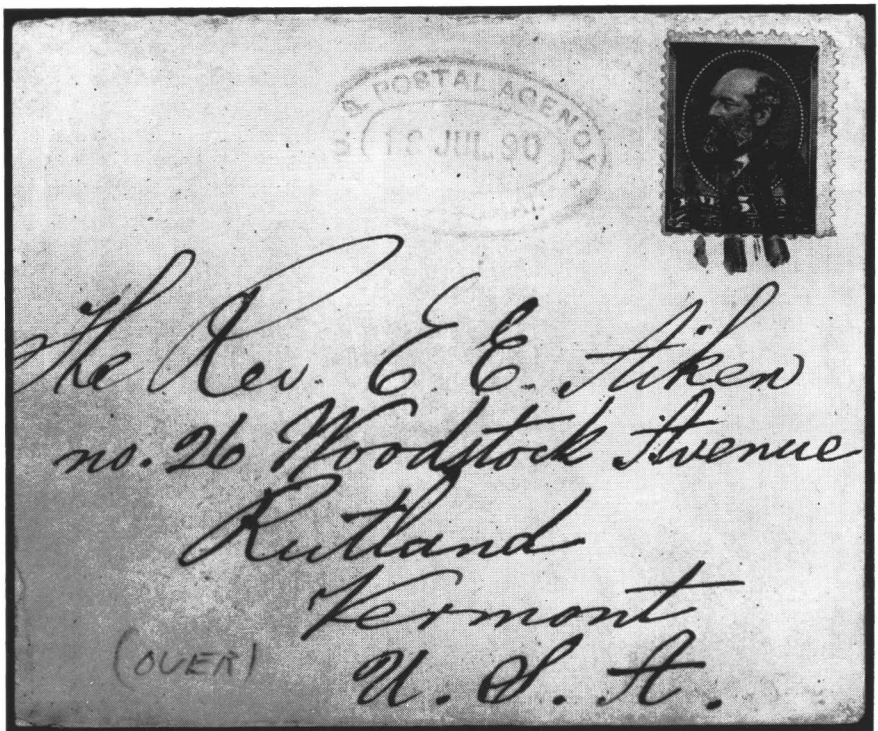 POSTAL AGENCY
JUL. 90
The Rev. E. E. Aiken
no. 26 Woodstock Avenue
Rutland
Vermont
U. S. A.
(OVER)